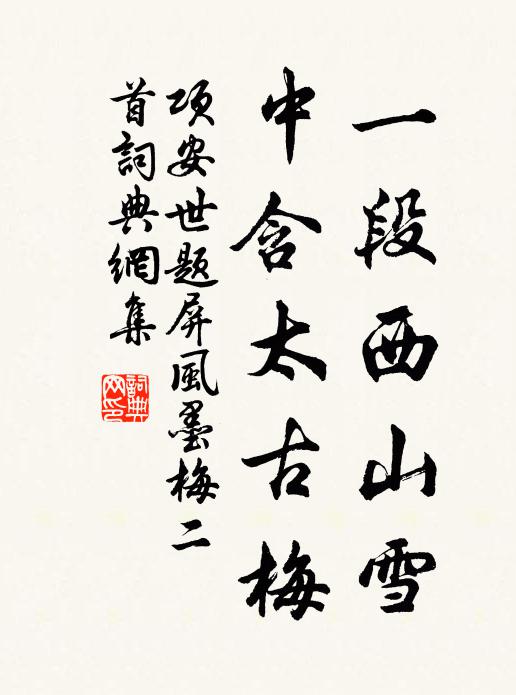 一段西山雪
中含太古梅
项安世題屏風墨梅二
首詞典網集
詞典
网印